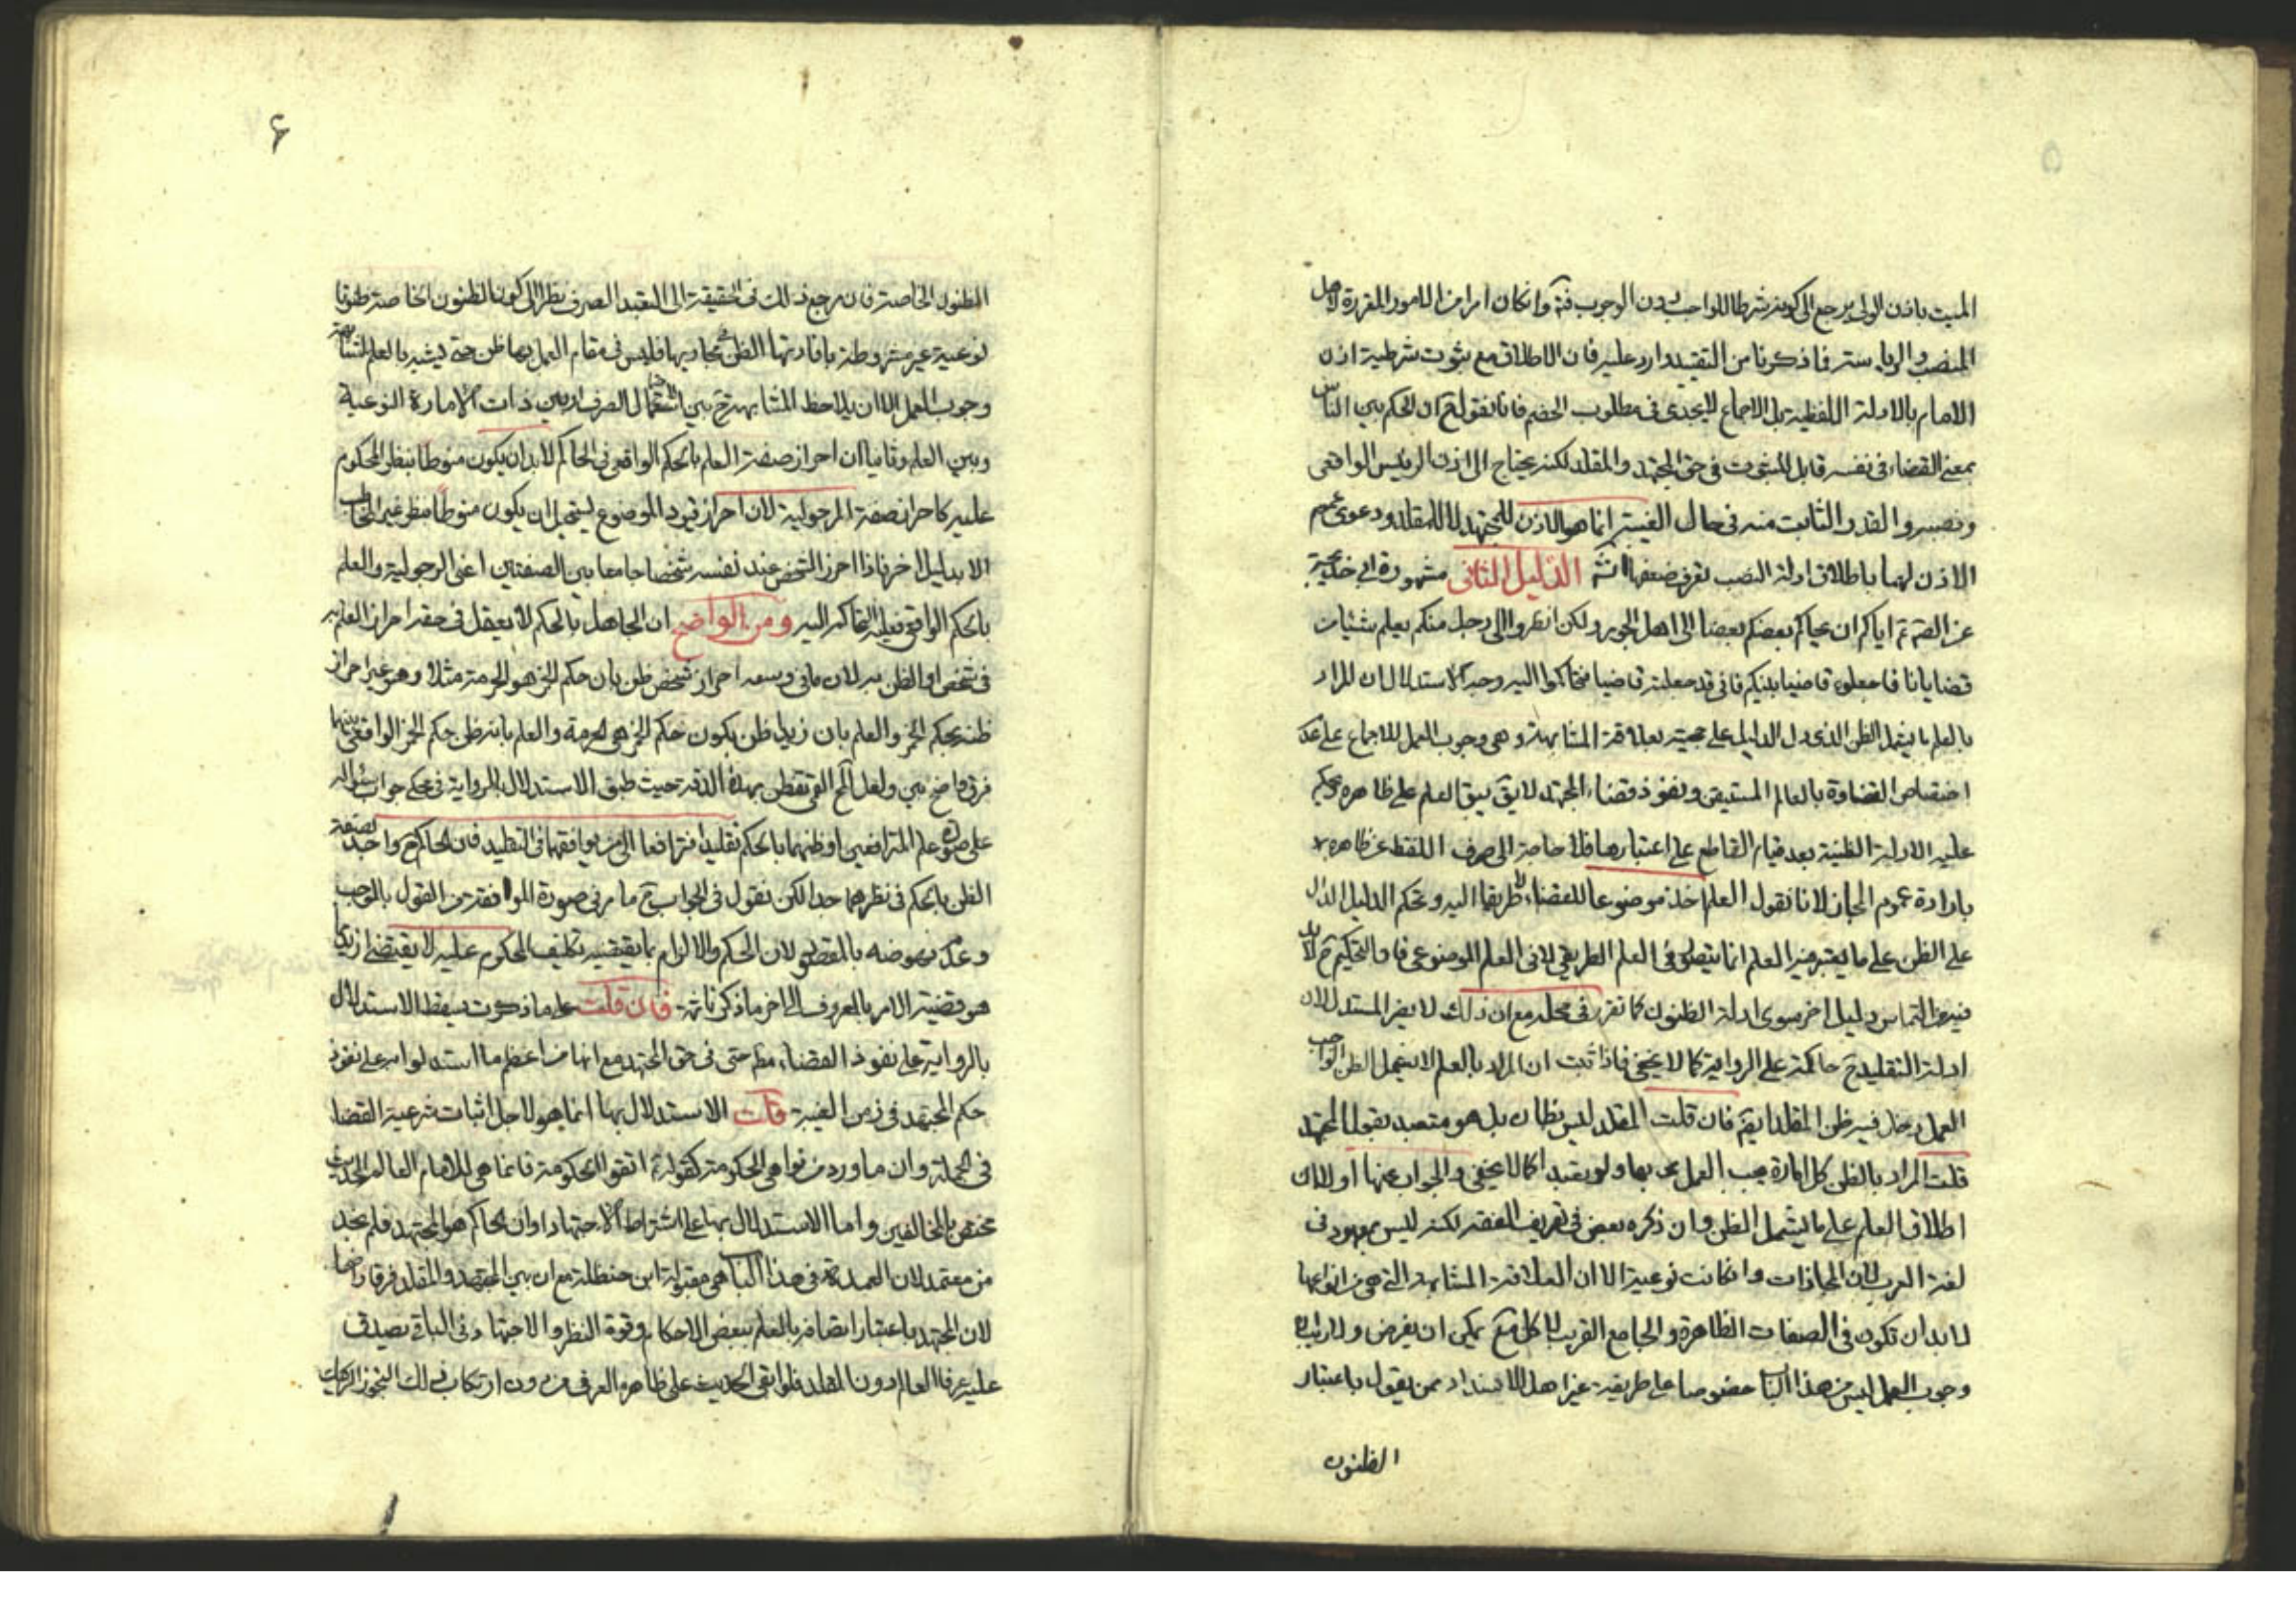 الميت باذن الولى يرجع الى كونه شرطا للواجب دون الوجوب فيه وان كان امرا من الامور المقررة لاهل
المنصب والرياسة فما ذكرنا من التقييد وارد عليه فان الاطلاق مع ثبوت شرطية اذن
الامام بالادلة اللفظية بل الاجماع لا يجدى فى مطلوب الخصم فانا نقول ان الحكم بين الناس
بمعنى القضاء فى نفسه قابل للثبوت فى حق المجتهد والمقلد لكنه يحتاج الى اذن الرئيس الواقعى
ونصبه والقدر الثابت منه فى حال الغيبة انما هو الاذن للمجتهد لا للمقلد ودعوى عموم
الاذن لهما باطلاق ادلة النصب تعرف ضعفها الدليل الثانى مشهورة ابى خديجة
عن الصم ع اياكم ان يحاكم بعضكم بعضا الى اهل الجور ولكن انظروا الى رجل منكم يعلم شيئا من
قضايانا فاجعلوه قاضيا بينكم فانى قد جعلته قاضيا فتحاكموا اليه وجه الاستدلال ان المراد
بالعلم ما يشمل الظن الذى دل الدليل على حجيته بعلاقة المشابهة وهى وجوب العمل للاجماع على عدم
اختصاص القضاوة بالعالم المستيقن ونفوذ قضاء المجتهد لا يق يبق العلم على ظاهره ويحكم
عليه الادلة الظنية بعد قيام القاطع على اعتبارها فلا حاجة الى صرف اللفظ عن ظاهره
بارادة عموم المجاز لانا نقول العلم اخذ موضوعا للقضاء لا طريقا اليه وتحكم الدليل الدال
على الظن على ما يعتبر فيه العلم انما يتصور فى العلم الطريقى لا فى العلم الموضوعى فالتحكيم ح لا بد
فيه من التماس دليل اخر سوى ادلة الظنون كما تقرر فى محله مع ان ذلك لا يضر المستدل لان
ادلة التقليد ح حاكمة على الرواية كما لا يخفى فاذا ثبت ان المراد بالعلم لا يشمل الظن الواجب
العمل دخل فيه ظن المقلد ايضا فان قلت المقلد ليس بظان بل هو متعبد بقول المجتهد
قلت المراد بالظن كل امارة يجب العمل بها ولو تعبدا كما لا يخفى والجواب عنها اولا ان
اطلاق العلم على ما يشمل الظن وان ذكره بعض فى تعريف الفقه لكنه ليس بمعهود فى
لغة العرب لان المجازات وان كانت نوعية الا ان العلاقة المشابهة التى هى من انواعها
لا بد ان تكون فى الصفات الظاهرة والجامع القريب لا كل جامع يمكن ان يفرض ولا ريب ان
وجوب العمل ليس من هذا الباب خصوصا على طريقة غير اهل الانسداد ممن يقول باعتبار
الظنون
۶
الظنون الخاصة فان مرجع ذلك فى الحقيقة الى التعبد الصرف نظرا الى كون الظنون الخاصة ظنونا
نوعية غير مشروطة بافادتها الظن فى مجاريها فليس فى مقام العمل بها ظن حتى يشبه بالعلم لمشابهة
وجوب العمل الا ان يلاحظ المشابهة ح بين ذات الامارة النوعية
وبين العلم وثانيا ان احراز صفة العلم بالحكم الواقعى فى الحاكم لا بد ان يكون منوطا بنظر المحكوم
عليه كاحراز صفة الرجولية لان احراز قيود الموضوع يستحيل ان يكون منوطا بنظر غير المخاطب
الا بدليل اخر فاذا احرز الشخص عند نفسه شخصا جامعا بين الصفتين اعنى الرجولية والعلم
بالحكم الواقعى فعليه التحاكم اليه ومن الواضح ان الجاهل بالحكم لا يعقل فى حقه احراز العلم به
فى شخص او الظن به لان ما فى وسعه احراز شخص ظن بان حكم الخمر هو الحرمة مثلا وهو غير احراز
ظنه بحكم الخمر والعلم بان زيدا ظن بكون حكم الخمر هى الحرمة والعلم بانه ظن حكم الخمر الواقعى بينهما
فرق واضح بين ولعل المحقق القمى تفطن بهذه الدقة حيث طبق الاستدلال بالرواية فى محكى جواب سؤاله
على صورة علم المترافعين او ظنهما بالحكم تقليدا فترافعا الى من يوافقهما فى التقليد فان الحاكم ح واجد لصفة
الظن بالحكم فى نظرهما جدا لكن نقول فى الجواب ح ما مر فى صورة الموافقة من القول بالموجب
وعدم نهوضه بالمقصود لان الحكم والالزام بما يقتضيه تكليف المحكوم عليه لا يقتضى ازيد مما
هو قضية الامر بالمعروف الى اخر ما ذكرنا ثمة فان قلت على ما ذكرت يسقط الاستدلال
بالرواية على نفوذ القضاء مط حتى فى حق المجتهد مع انها من اعظم ما استدلوا به على نفوذ
حكم المجتهد فى زمن الغيبة قلت الاستدلال بها انما هو لاجل اثبات شرعية القضا
فى الجملة وان ما ورد من نواهى الحكومة كقوله ع اتقوا الحكومة فانما هى للامام العالم الحديث
مختص بالمخالفين واما الاستدلال بها على اشتراط الاجتهاد او ان الحاكم هو المجتهد فلم نجد
من معتمد لان العمدة فى هذا الباب هى مقبولة ابن حنظلة مع ان بين المجتهد والمقلد فرقا واضحا
لان المجتهد باعتبار اتصافه بالعلم ببعض الاحكام وقوة النظر والاجتهاد فى الباقى يصدق
عليه عرفا العالم دون المقلد فلو ابقى الحديث على ظاهره العرفى من دون ارتكاب ذلك التجوز الركيك